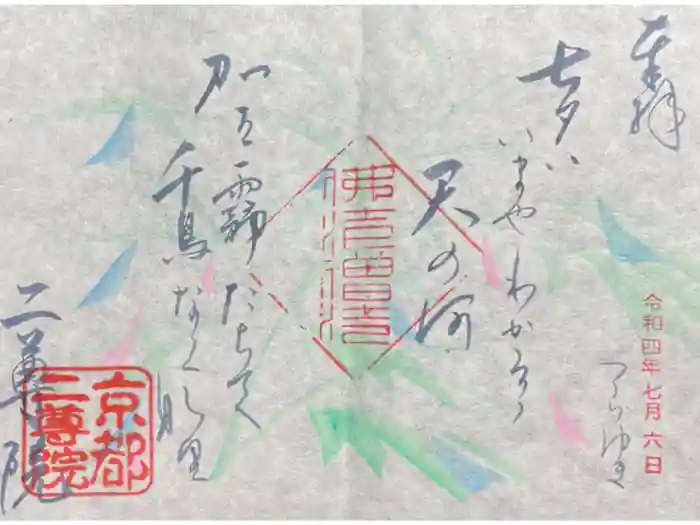 奉拝
七夕は
いまやわかるゝ
つらゆき
天の河
霧たちて
千鳥なくなり
二尊院
令和四年七月六日
京都
二尊院